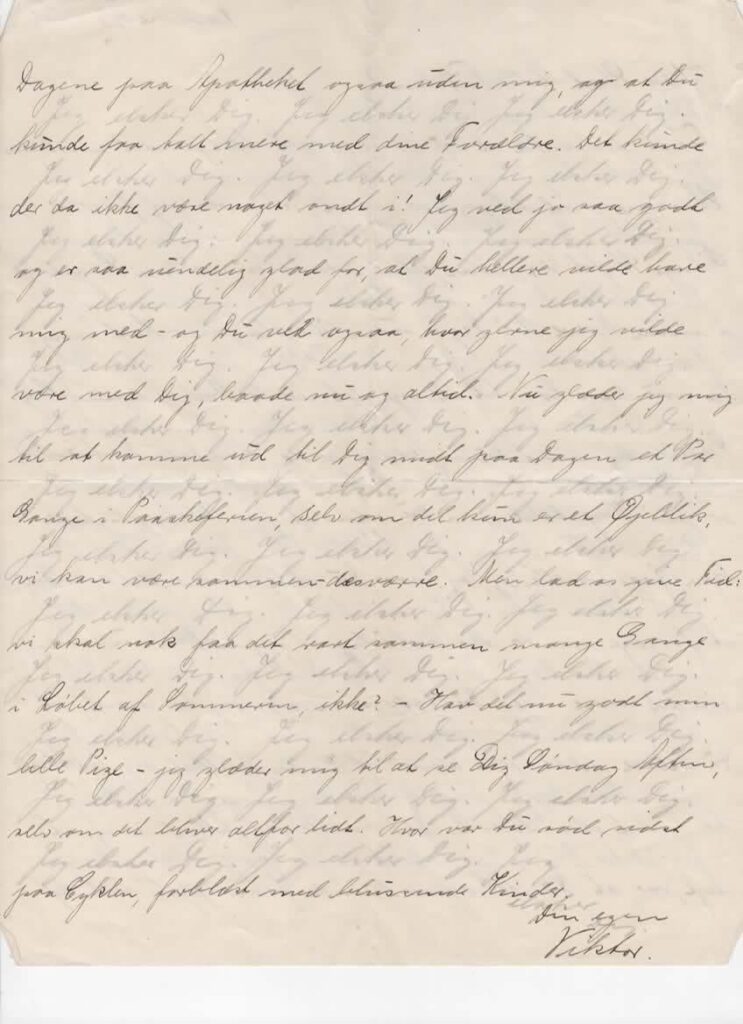 Dagene paa Apotheket ogsaa uden mig, og at Du
Jeg elsker Dig. Jeg elsker Dig. Jeg elsker Dig.
kunde faa talt mere med dine Forældre. Det kunde
Jeg elsker Dig. Jeg elsker Dig. Jeg elsker Dig.
der da ikke være noget ondt i! Jeg ved jo saa godt
Jeg elsker Dig. Jeg elsker Dig. Jeg elsker Dig.
og er saa uendelig glad for, at Du hellere vilde have
Jeg elsker Dig. Jeg elsker Dig. Jeg elsker Dig.
mig med - og Du ved ogsaa, hvor gerne jeg vilde
Jeg elsker Dig. Jeg elsker Dig. Jeg elsker Dig
være med Dig, baade nu og altid. Nu glæder jeg mig
Jeg elsker Dig. Jeg elsker Dig. Jeg elsker Dig.
til at komme ud til Dig midt paa Dagen et Par
Jeg elsker Dig. Jeg elsker Dig. Jeg elsker Dig
Gange i Paaskeferien, selv om det kun er et Øjeblik,
Jeg elsker Dig. Jeg elsker Dig. Jeg elsker Dig
vi kan være sammen - desværre. Men lad os give Tid:
Jeg elsker Dig. Jeg elsker Dig. Jeg elsker Dig
vi skal nok faa det rart sammen mange Gange
Jeg elsker Dig. Jeg elsker Dig. Jeg elsker Dig.
i Løbet af Sommeren, ikke? - Hav det nu godt min
Jeg elsker Dig. Jeg elsker Dig. Jeg elsker Dig.
lille Pige - jeg glæder mig til at se Dig Søndag Aften,
Jeg elsker Dig. Jeg elsker Dig. Jeg elsker Dig.
selv om det bliver altfor lidt. Hvor var Du sød sidst
Jeg elsker Dig. Jeg elsker Dig. Jeg
paa Cyklen, forblæst med blussende Kinder.
elsker
Din egen
Dig
Viktor.